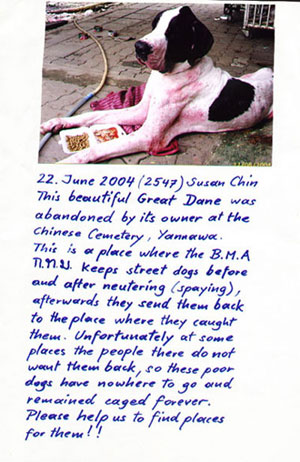 22. June 2004 (2547) Susan Chin
This beautiful Great Dane was
abandoned by its owner at the
Chinese Cemetery, Yannawa.
This is a place where the B.M.A
กทม. keeps street dogs before
and after neutering (spaying),
afterwards they send them back
to the place where they caught
them. Unfortunately at some
places the people there do not
want them back, so these poor
dogs have nowhere to go and
remained caged forever.
Please help us to find places
for them!!